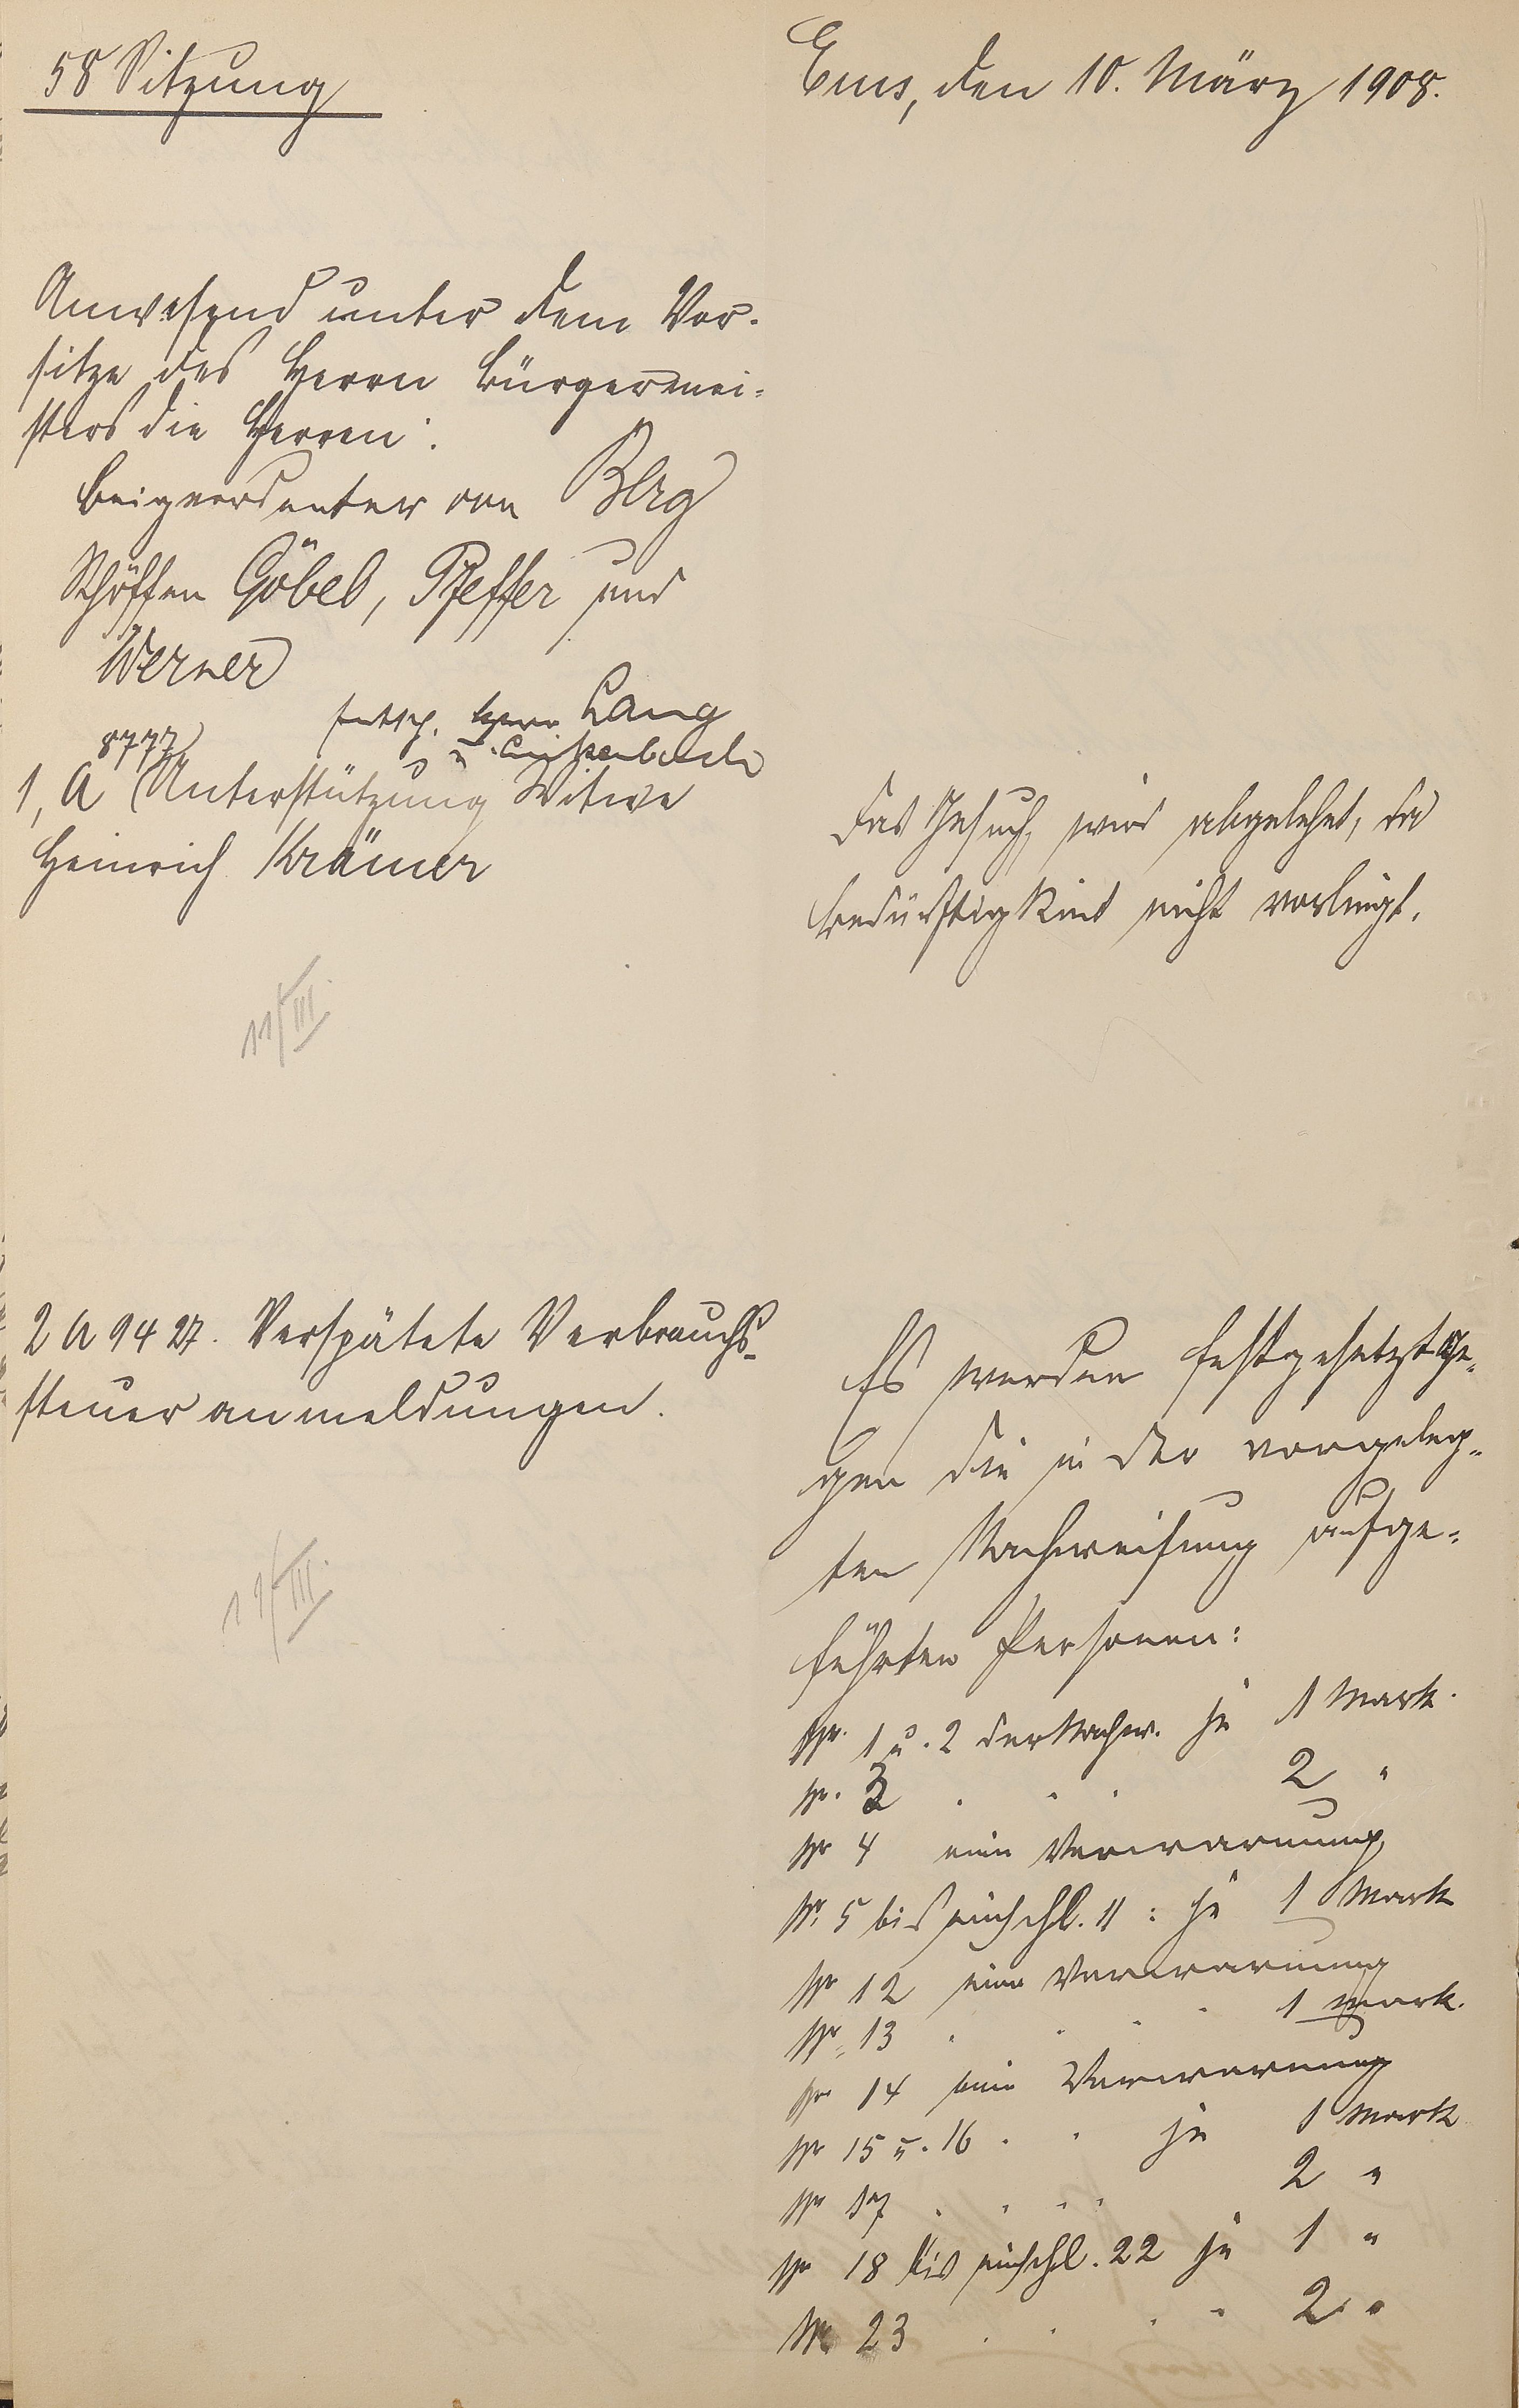 58 Sitzung
Ems, den 10. März 1908.
Anwesend unter dem Vor-
sitze des Herrn Bürgermei-
sters die Herren:
Beigeordneter von Berg
Schöffen Göbel, Pfeffer und
Werner
entsch. Herr Lang
u.
8777
1, A Unterstützung Witwe
Heinrich Krämer
Das Gesuch wird abgelehnt, da
Bedürftigkeit nicht vorliegt.
11/III.
2 A 9427. Verspätete Verbrauchs-
steueranmeldungen.
Es werden festgesetzt ge-
gen die in der vorgeleg-
ten Nachweisung aufge-
führten Personen:
11/III.
Nr. 1 u. 2 der Nachw. je 1 Mark.
Nr. 3 " " " 2 "
Nr 4 eine Verwarnung
Nr. 5 bis einschl. 11: je 1 Mark
Nr 12 eine Verwarnung
Nr. 13 " " " " 1 Mark.
Nr 14 eine Verwarnung
Nr 15 u. 16 " " je 1 Mark
Nr 17 " " " " 2 "
Nr 18 bis einschl. 22 je 1 "
Nr 23 " " " " 2 "